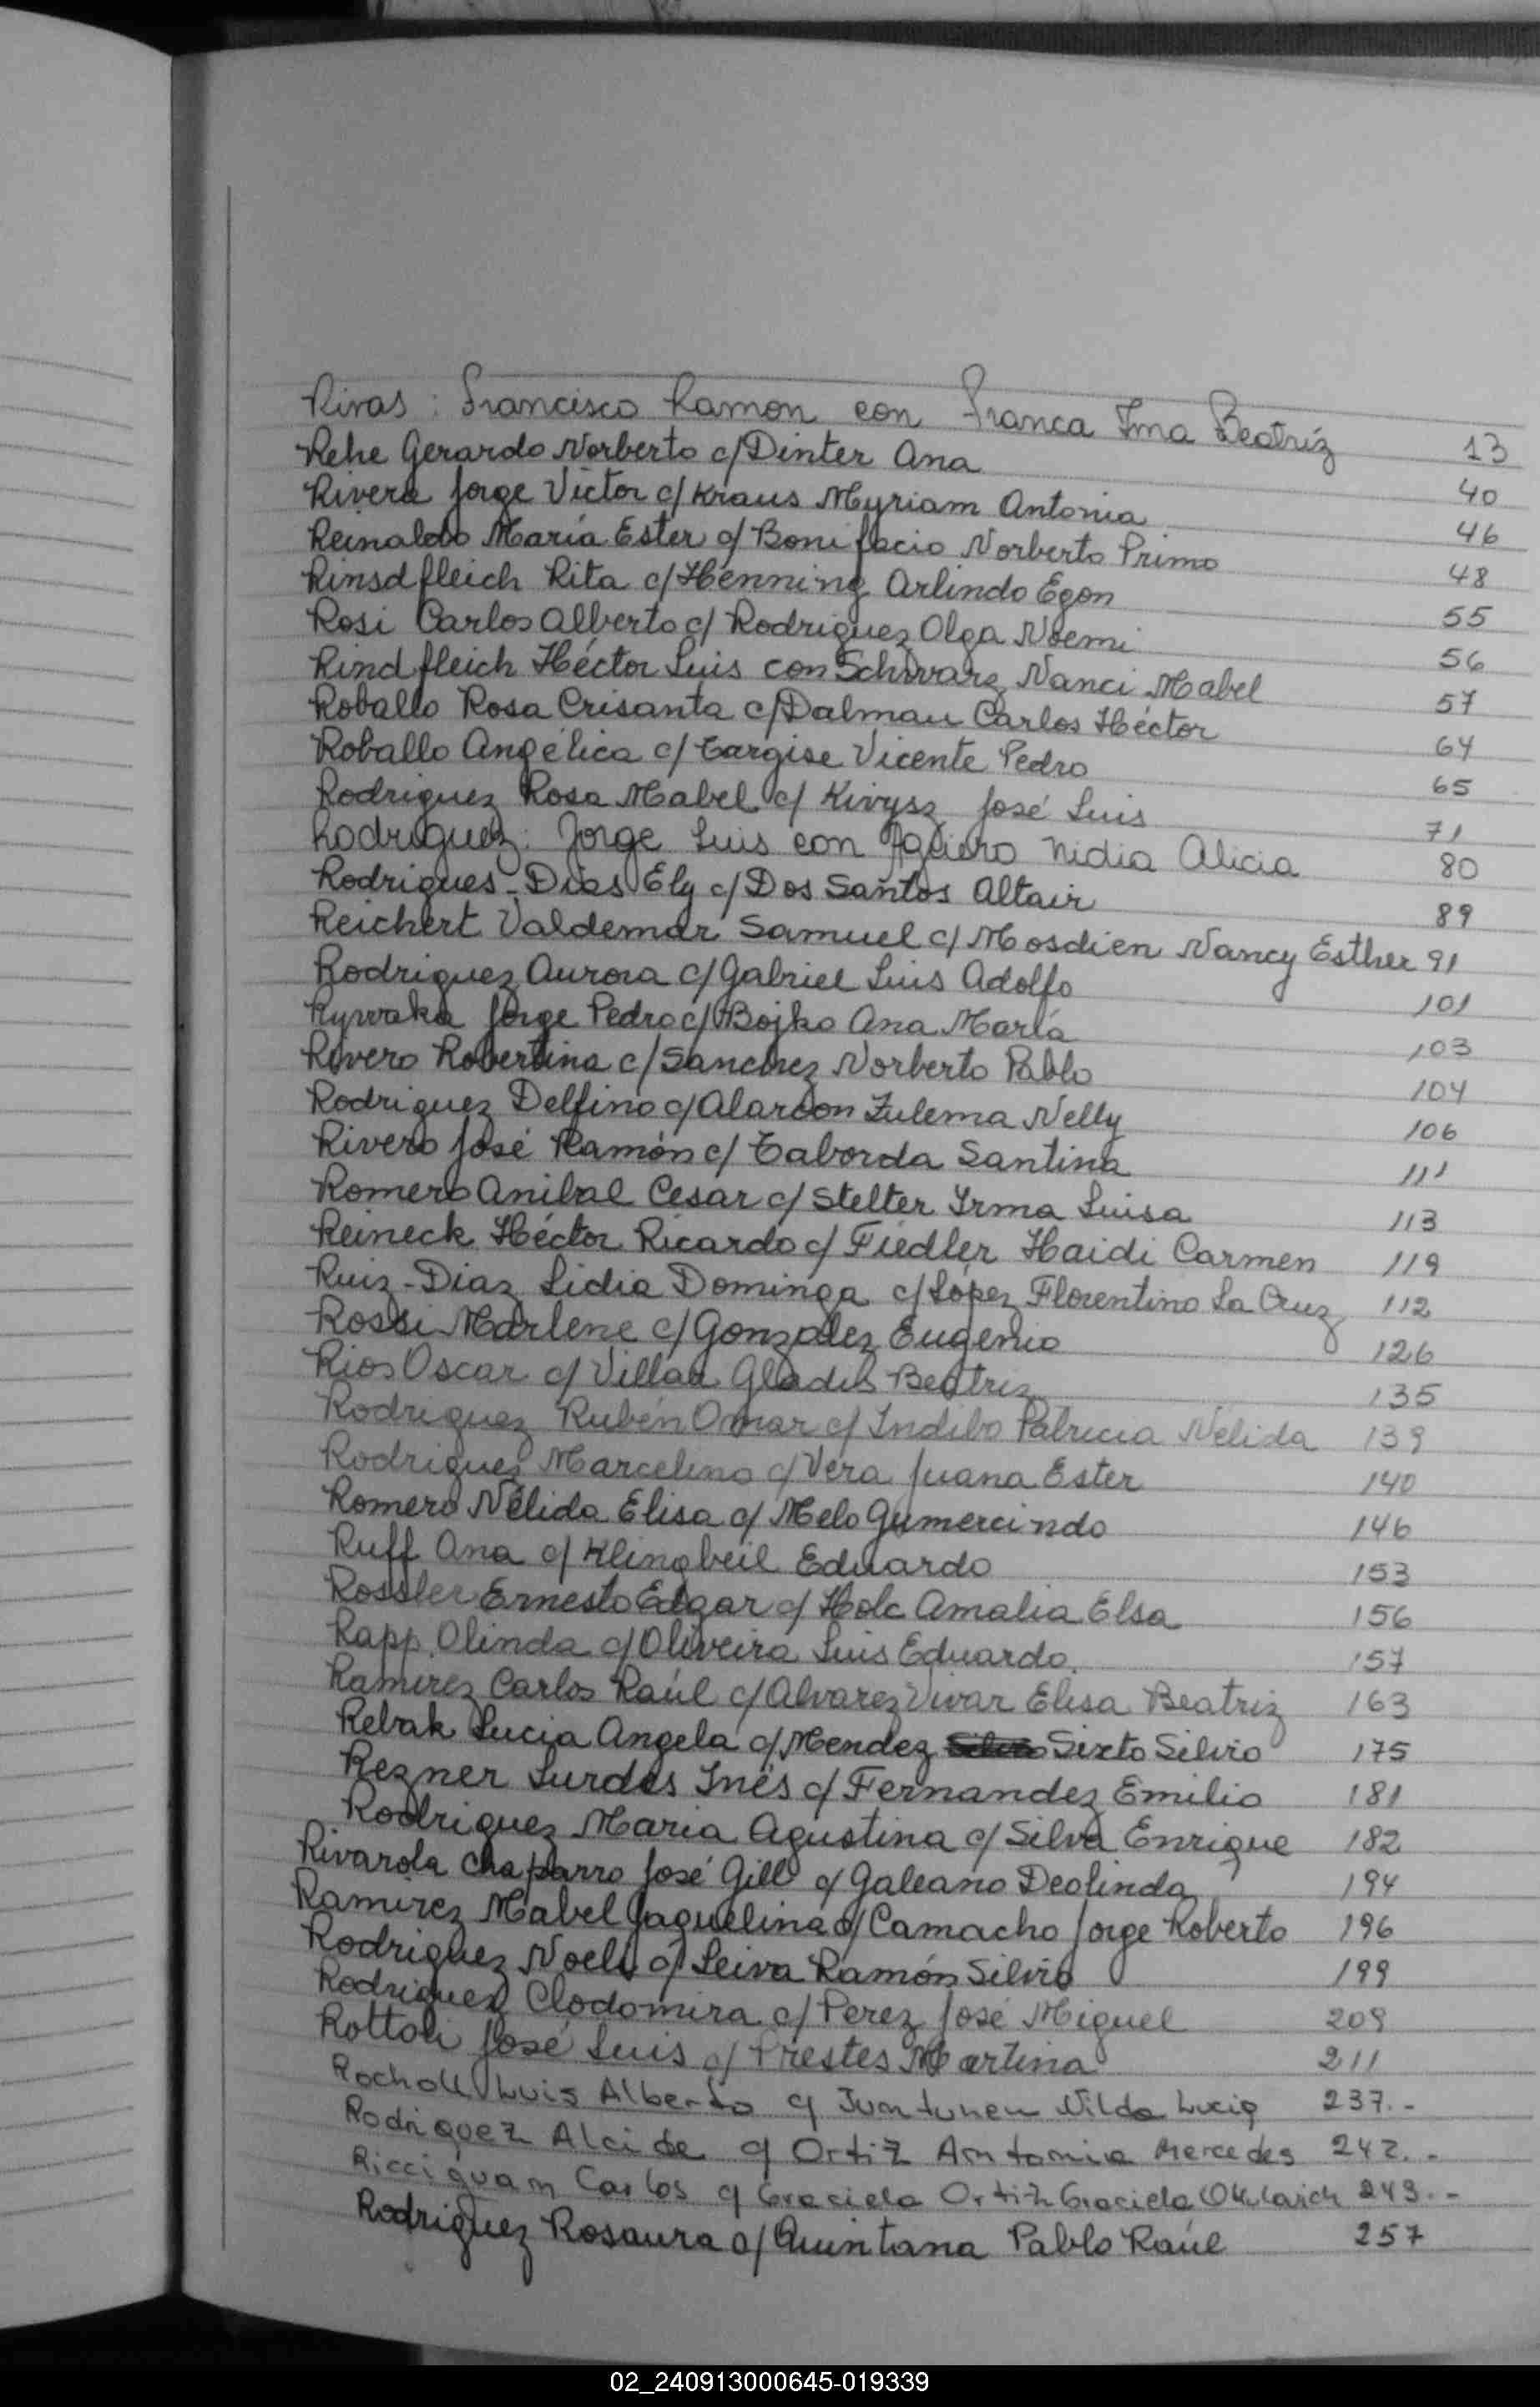 Rivas : Francisco Ramon con Franca Irma Beatríz 13
Rehe Gerardo Norberto c/ Dinter Ana 40
Rivera Jorge Victor c/ Kraus Myriam Antonia 46
Reinaldo María Ester c/ Bonifacio Norberto Primo 48
Rinsdfleich Rita c/ Henning Arlindo Egon 55
Rosi Carlos Alberto c/ Rodriguez Olga Noemi 56
Rindfleich Héctor Luis con Schwarz Nanci Mabel 57
Roballo Rosa Crisanta c/ Dalmau Carlos Héctor 64
Roballo Angélica c/ Targise Vicente Pedro 65
Rodriguez Rosa Mabel c/ Kivysz José Luis 71
Rodriguez : Jorge Luis con Agüero Nidia Alicia 80
Rodrigues - Dias Ely c/ Dos Santos Altair 89
Reichert Valdemar Samuel c/ Mosdien Nancy Esther 91
Rodriguez Aurora c/ Gabriel Luis Adolfo 101
Rywaka Jorge Pedro c/ Bojko Ana María 103
Rivero Robertina c/ Sanchez Norberto Pablo 104
Rodriguez Delfino c/ Alarcon Zulema Nelly 106
Rivero José Ramón c/ Taborda Santina 111
Romero Anibal Cesar c/ Stelter Irma Luisa 113
Reineck Héctor Ricardo c/ Fiedler Haidi Carmen 119
Ruiz - Diaz Lidia Dominga c/ López Florentino La Cruz 112
Rossi Marlene c/ Gonzalez Eugenio 126
Rios Oscar c/ Villan Gladis Beatriz 135
Rodriguez Rubén Omar c/ Indibo Patricia Nélida 139
Rodrigues Marcelino c/ Vera Juana Ester 140
Romero Nélida Elisa c/ Melo Gumercindo 146
Ruff Ana c/ Klingbeil Eduardo 153
Rossler Ernesto Edgar c/ Holc Amalia Elsa 156
Rapp Olinda c/ Oliveira Luis Eduardo. 157
Ramirez Carlos Raúl c/ Alvarez Vivar Elisa Beatriz 163
Rebak Lucia Angela c/ Mendez Sixto Silvio 175
Rezner Lurdes Inés c/ Fernandez Emilio 181
Rodriguez Maria Agustina c/ Silva Enrique 182
Rivarola Chaparro José Gill c/ Galeano Deolinda 194
Ramirez Mabel Jaquelina c/ Camacho Jorge Roberto 196
Rodriguez Noeli c/ Leiva Ramón Silvio 199
Rodriguez Clodomira c/ Perez José Miguel 209
Rottoli José Luis c/ Prestes Martina 211
Rocholl Luis Alberto c/ Juntunen Nilda Lucia 237.-
Rodriguez Alcide c/ Ortiz Antonia Mercedes 242.-
Ricciguam Carlos c/ Graciela Ortiz Graciela 243.-
Rodriguez Rosaura c/ Quintana Pablo Raúl 257
02_240913000645-019339